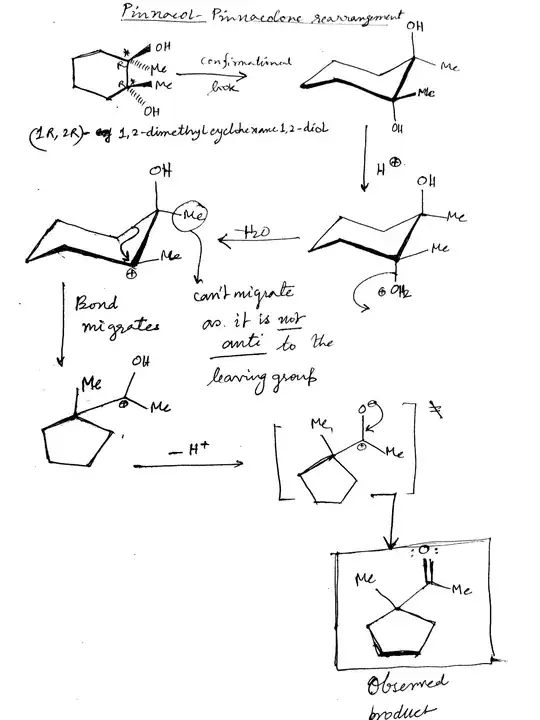 Pinnacol - Pinnacolone rearrangement
OH
R
Me
R
Me
OH
confirmational
look
OH
Me
Me
OH
(1R, 2R) - 1,2-dimethylcyclohexane 1,2-diol
H ⊕
OH
Me
-H2O
OH
Me
Me
⊕
OH
Me
Me
⊕ OH2
Bond
migrates
can't migrate
as it is not
anti to the
leaving group
Me
OH
⊕
Me
- H+
Me
O⊖
⊕
Me
≠
:O:
Me
Me
Observed
product